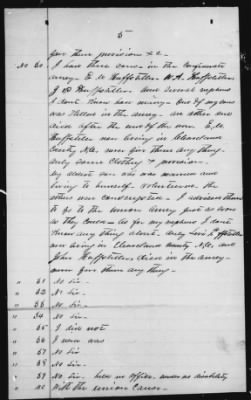 5
for their provision &c.
No 50 I had three sons in the Confederate
army - E. M. Huffstetler W. A. Huffstetler
J. Huffstetler and several nephews
I dont know how many. One of my sons
was killed in the army. an other one
died after the end of the war. E. M.
Huffstetler now living in Cleaveland
County N.C. never for them any thing
only some clothing & provision.
My oldest son was married and
living to himself volunteered the
others were conscripted. I advised them
to go to the Union Army just as soon
as they could. As for my nephews I dont
know any thing about. only Levi Huffstetler
now living in Cleaveland County N.C. and
John Huffstetler died in the army.
never for them any thing.
" 51 No Sir.
" 52 No Sir.
" 53 No Sir.
" 54 No Sir.
" 55 I did not
" 56 I never was
" 57 No Sir
" 58 No Sir.
" 59 No Sir. held no office. under no disability
" 60 With the union cause.